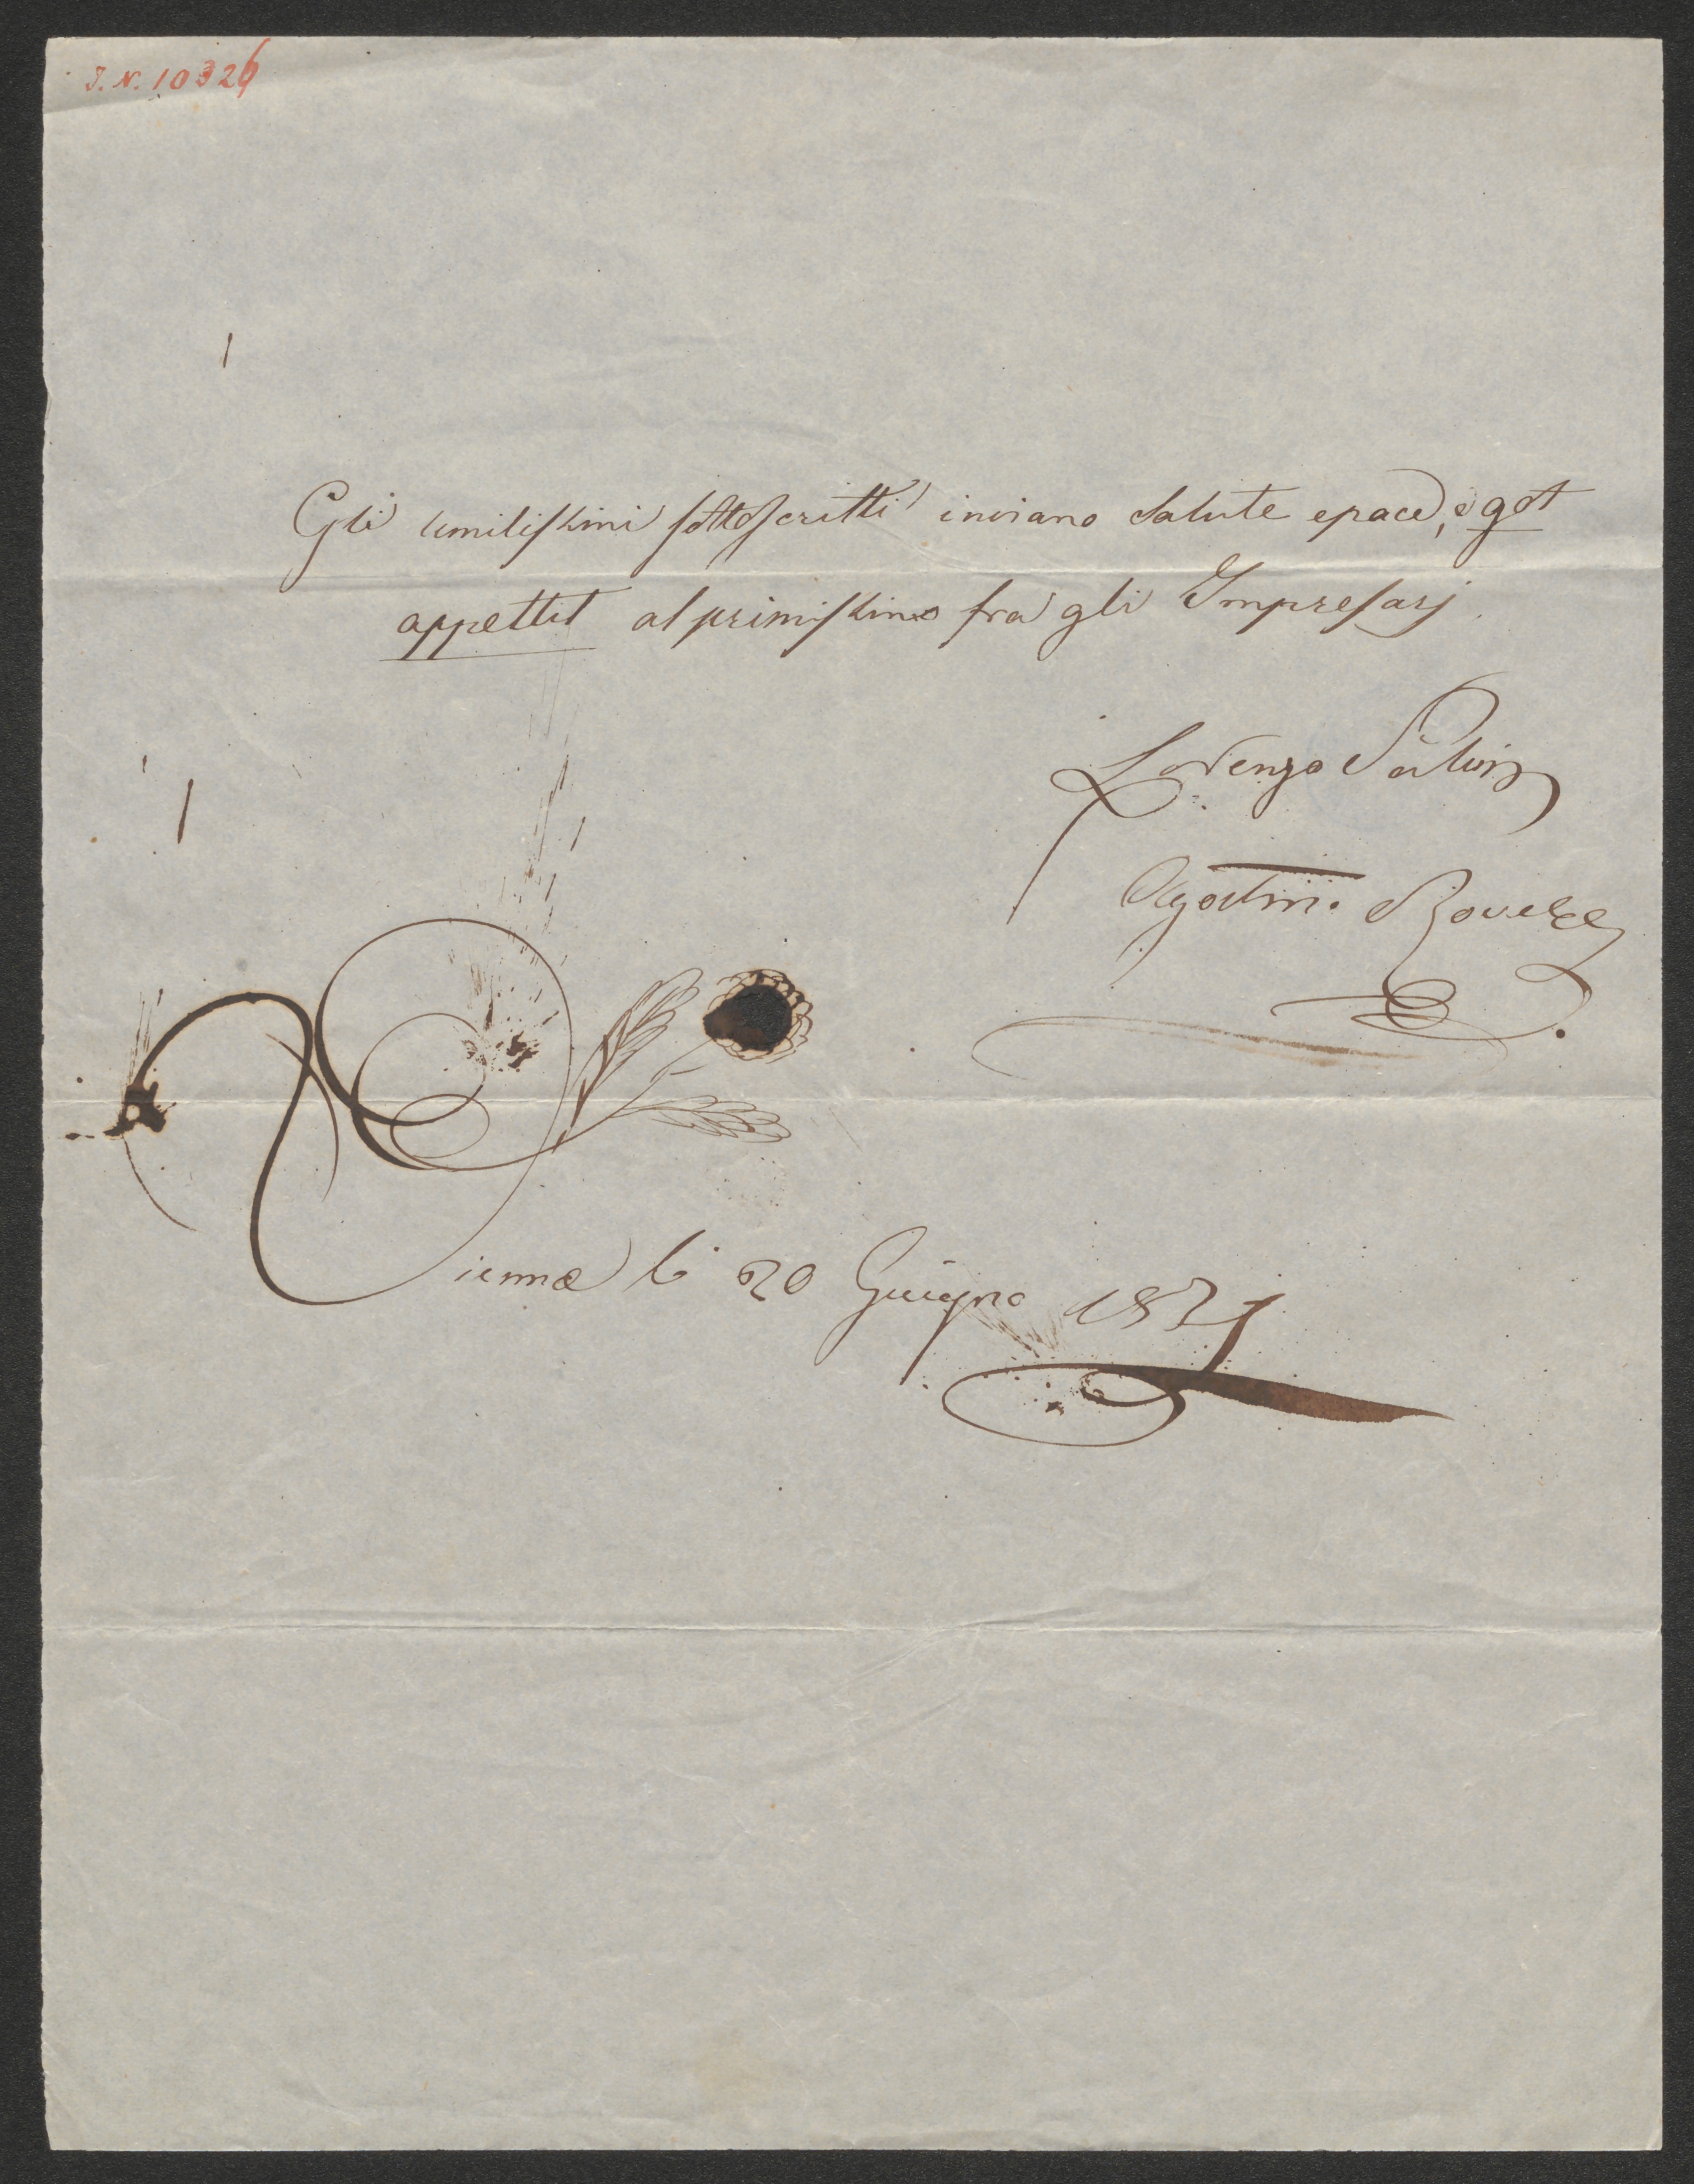 I.N. 10326
Gli umilissimi sottoscritti inviano Salute e pace, e got
appettit al primissimo fra gli Impresarj.
Lorenzo Salvi
Agostino Rovere
Vienna li 20 Giugno